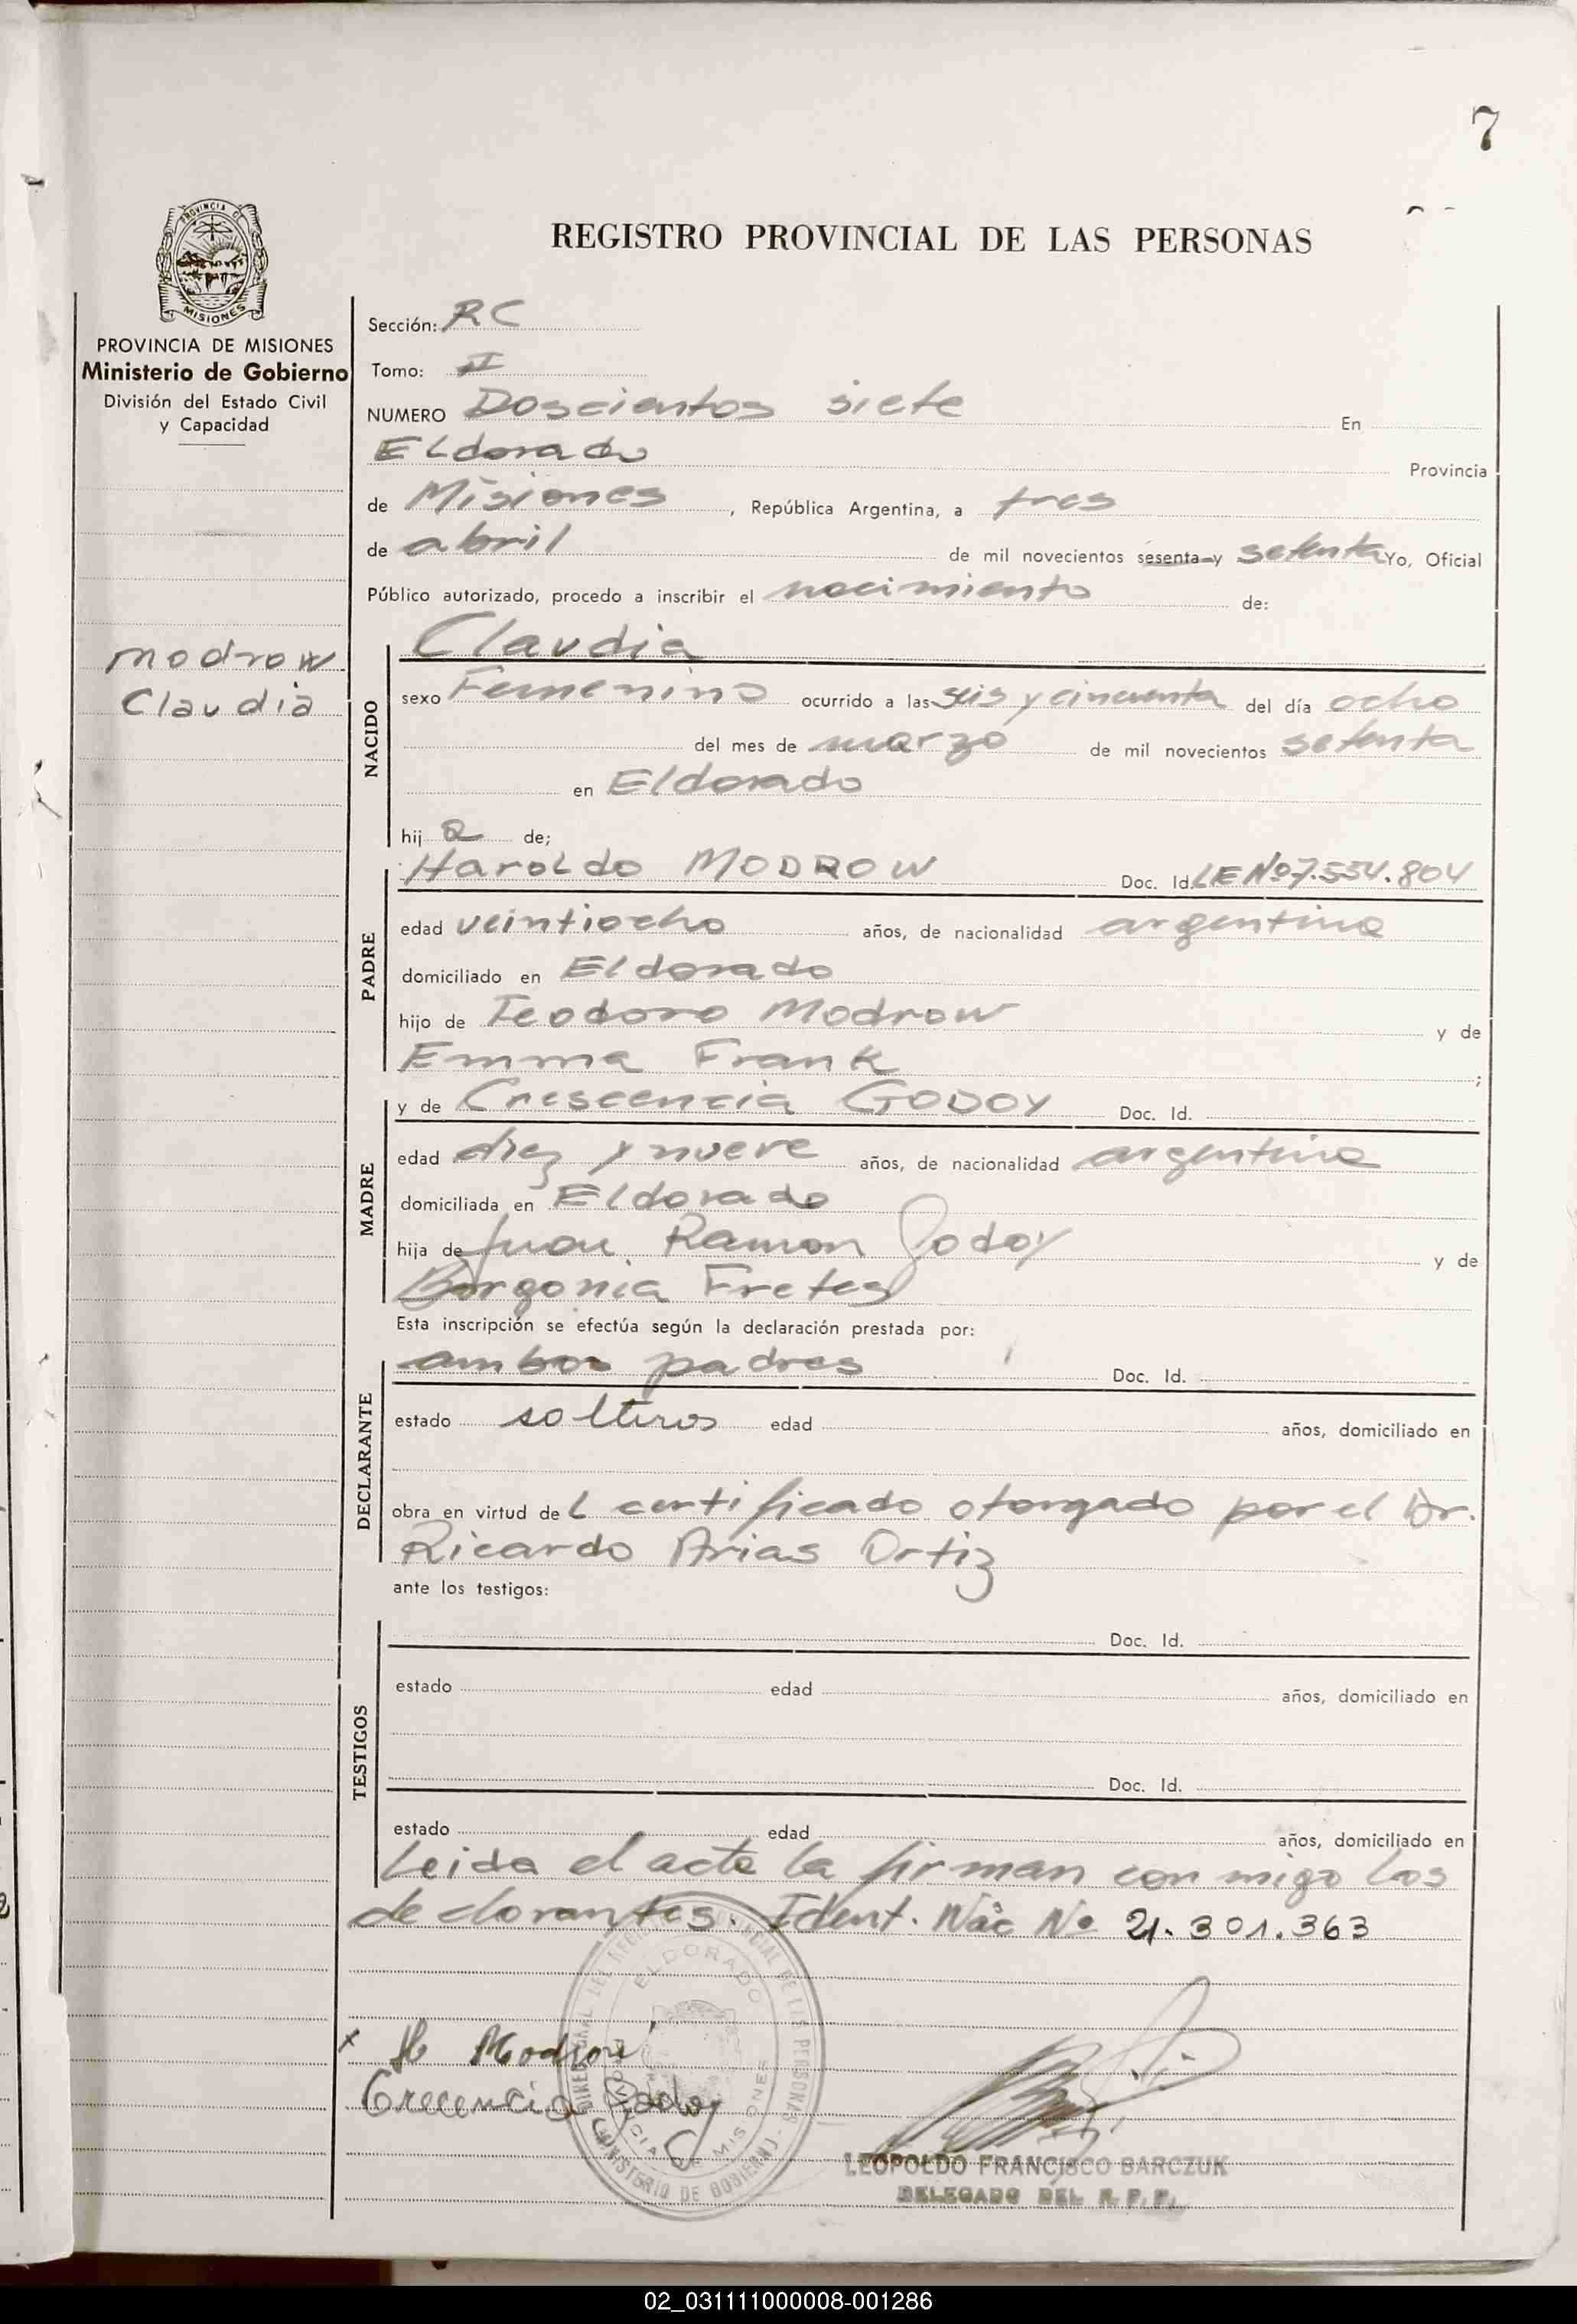 7
PROVINCIA DE
MISIONES
REGISTRO PROVINCIAL DE LAS PERSONAS
PROVINCIA DE MISIONES
Ministerio de Gobierno
División del Estado Civil
y Capacidad
Modrow
Claudia
Sección: RC
Tomo: II
NUMERO Doscientos siete En
Eldorado Provincia
de Misiones, República Argentina, a tres
de abril de mil novecientos sesenta y setenta Yo, Oficial
Público autorizado, procedo a inscribir el nacimiento de:
NACIDO
Claudia
sexo Femenino ocurrido a las seis y cincuenta del día ocho
del mes de marzo de mil novecientos setenta
en Eldorado
hij a de;
PADRE
Haroldo MODROW Doc. Id. LE Nº 7.554.804
edad veintiocho años, de nacionalidad argentina
domiciliado en Eldorado
hijo de Teodoro Modrow y de
Emma Frank ;
MADRE
y de Crescencia GODOY Doc. Id.
edad diez y nueve años, de nacionalidad argentina
domiciliada en Eldorado
hija de Juan Ramon Godoy y de
Borgonia Fretes
Esta inscripción se efectúa según la declaración prestada por:
DECLARANTE
ambos padres Doc. Id.
estado solteros edad años, domiciliado en
obra en virtud del certificado otorgado por el Dr.
Ricardo Arias Ortiz
ante los testigos:
TESTIGOS
Doc. Id.
estado edad años, domiciliado en
Doc. Id.
estado edad años, domiciliado en
Leida el acta la firman con migo los
declarantes. Ident. Nac Nº 21.301.363
ELDORADO
PROVINCIA DE MISIONES
MINISTERIO DE GOBIERNO
x H Modrow
Crecencia Godoy
LEOPOLDO FRANCISCO BARCZUK
DELEGADO DEL R. P. P.
02_031111000008-001286